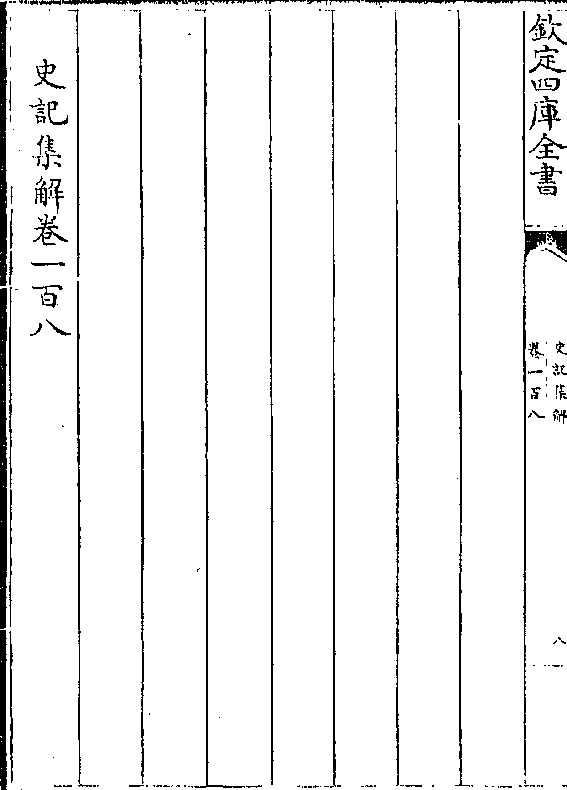 欽定四庫全書
史記集解
卷一百八
八
史記集解卷一百八